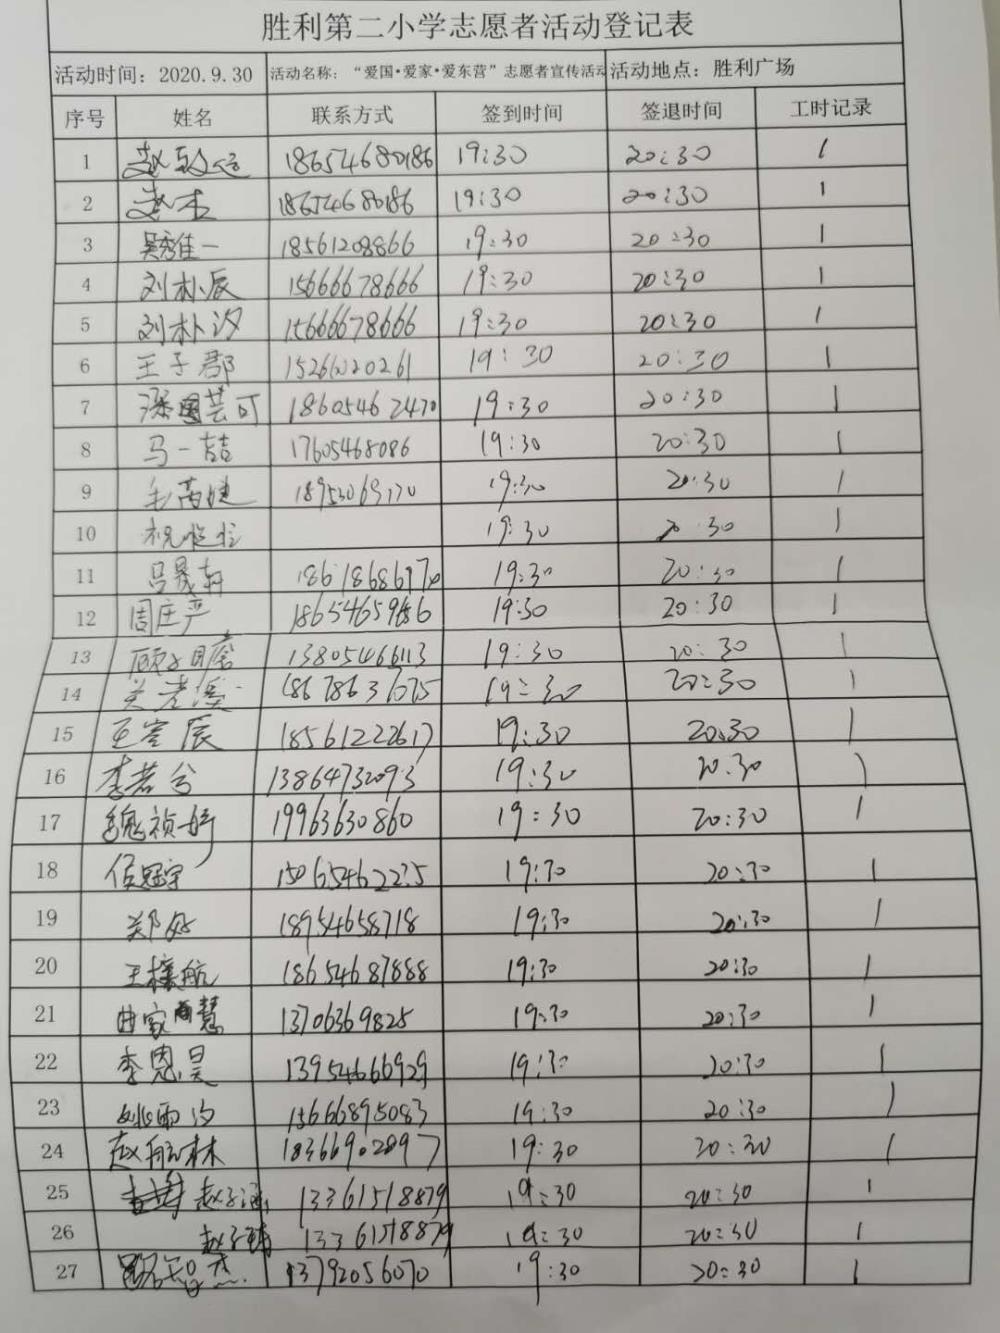 胜利第二小学志愿者活动登记表
活动时间：2020.9.30 活动名称：“爱国·爱家·爱东营”志愿者宣传活动 活动地点：胜利广场
序号 姓名 联系方式 签到时间 签退时间 工时记录
1 赵 18654680186 19:30 20:30 1
2 赵杰 18654680186 19:30 20:30 1
3 吴秀佳一 18561208866 19:30 20:30 1
4 刘朴辰 15666678666 19:30 20:30 1
5 刘朴汐 15666678666 19:30 20:30 1
6 王子郡 19:30 20:30 1
7 芸可 18605462470 19:30 20:30 1
8 马一喆 17605468086 19:30 20:30 1
9 毛芮婕 19:30 20:30 1
10 祝 19:30 20:30 1
11 吕晟轩 19:30 20:30 1
12 周庄严 19:30 20:30 1
13 顾 13805466113 19:30 20:30 1
14 18678636075 19:30 20:30 1
15 王 辰 18561222617 19:30 20:30 1
16 李若兮 13864732093 19:30 20:30 1
17 魏祯婷 19963630860 19:30 20:30 1
18 侯冠宇 15065462235 19:30 20:30 1
19 郑好 18954658718 19:30 20:30 1
20 王 航 18654687888 19:30 20:30 1
21 曲家 慧 13706369825 19:30 20:30 1
22 李恩昊 13954666929 19:30 20:30 1
23 姚雨汐 15666895083 19:30 20:30 1
24 赵航林 18366902897 19:30 20:30 1
25 赵子涵 13361518879 19:30 20:30 1
26 赵子 13361518879 19:30 20:30 1
27 智杰 13792056070 19:30 20:30 1